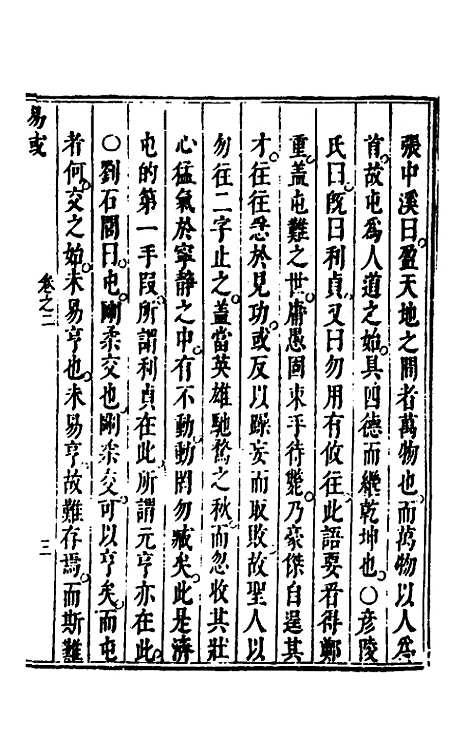 張中溪曰盈天地之間者萬物也而萬物以人爲
首故屯爲人道之始具四德而繼乾坤也○彥陵
氏曰旣曰利貞又曰勿用有攸往此語要看得鄭
重蓋屯難之世庸愚固束手待斃乃豪傑自逞其
才往往急於見功或反以躁妄而取敗故聖人以
勿往二字止之蓋當英雄馳騖之秋而忽收其壯
心猛氣於寧靜之中有不動動罔勿臧矣此是濟
屯的第一手段所謂利貞在此所謂元亨亦在此
○劉石閭曰屯剛柔交也剛柔交可以亨矣而屯
者何交之始未易亨也未易亨故難存焉而斯難
易或
卷之二
三